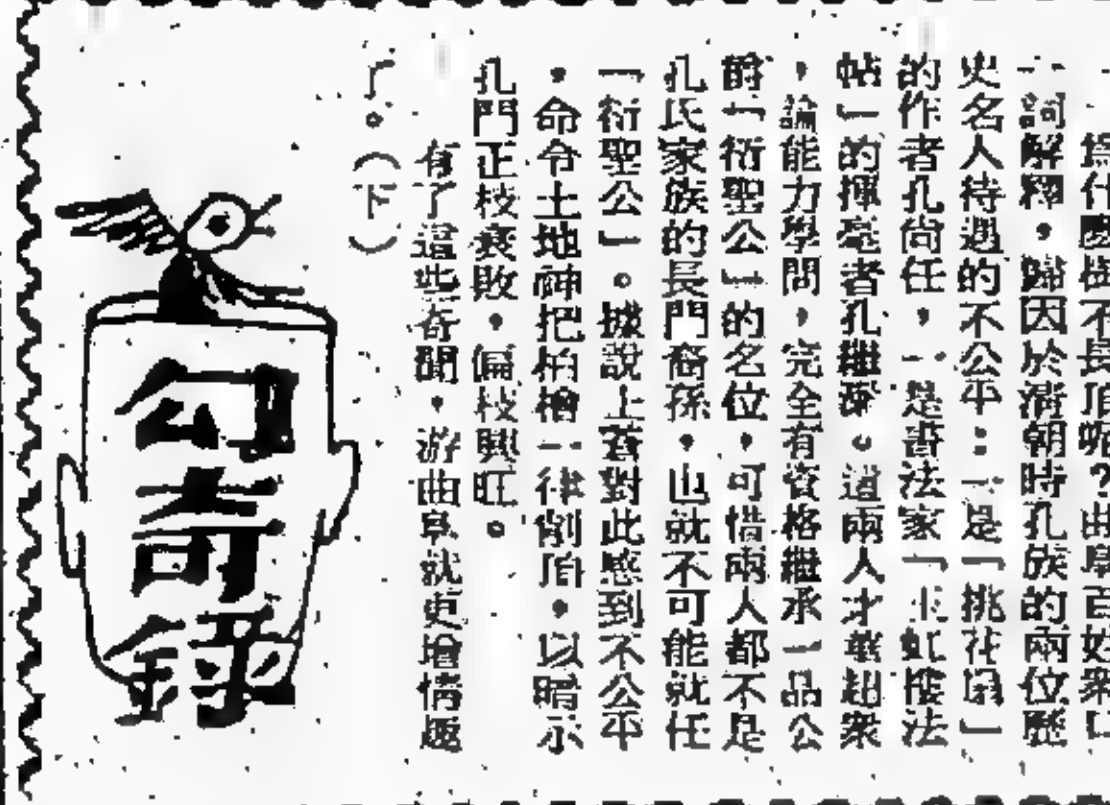 爲什麽樹不長頂呢？曲阜百姓衆口
一詞解釋，歸因於清朝時孔族的兩位歷
史名人待遇的不公平：一是「挑花扇」
的作者孔尚任，一是書法家「玉虹樓法
帖」的揮毫者孔繼涑。這兩人才華超衆
，論能力學問，完全有資格繼承一品公
爵「衍聖公」的名位，可惜兩人都不是
孔氏家族的長門裔孫，也就不可能就任
「衍聖公」。據說上蒼對此感到不公平
，命令土地神把柏檜一律削頂，以暗示
孔門正枝衰敗，偏枝興旺。
有了這些奇聞，游曲阜就更增情趣
了。（下）
勾奇錄